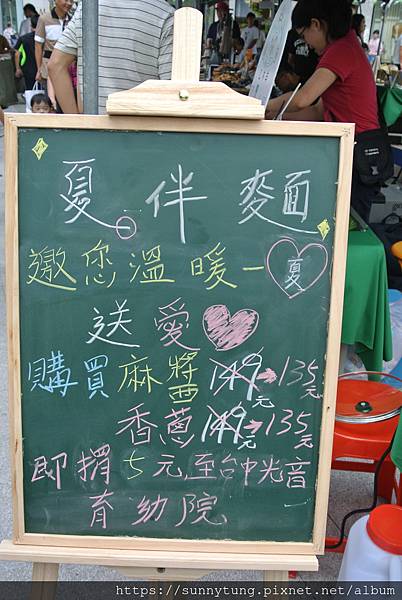 夏伴麵
邀您溫暖一夏
送愛
購買麻醬149→135元
元
香蔥149→135元
元
即捐5元至台中光音
育幼院
https://sunnytung.pixnet.net